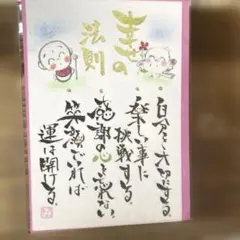 幸せの
法則
・自分を大切にする。
・楽しい事に
挑戦する。
・感謝の心を忘れない。
・笑顔でいれば
運は開ける。